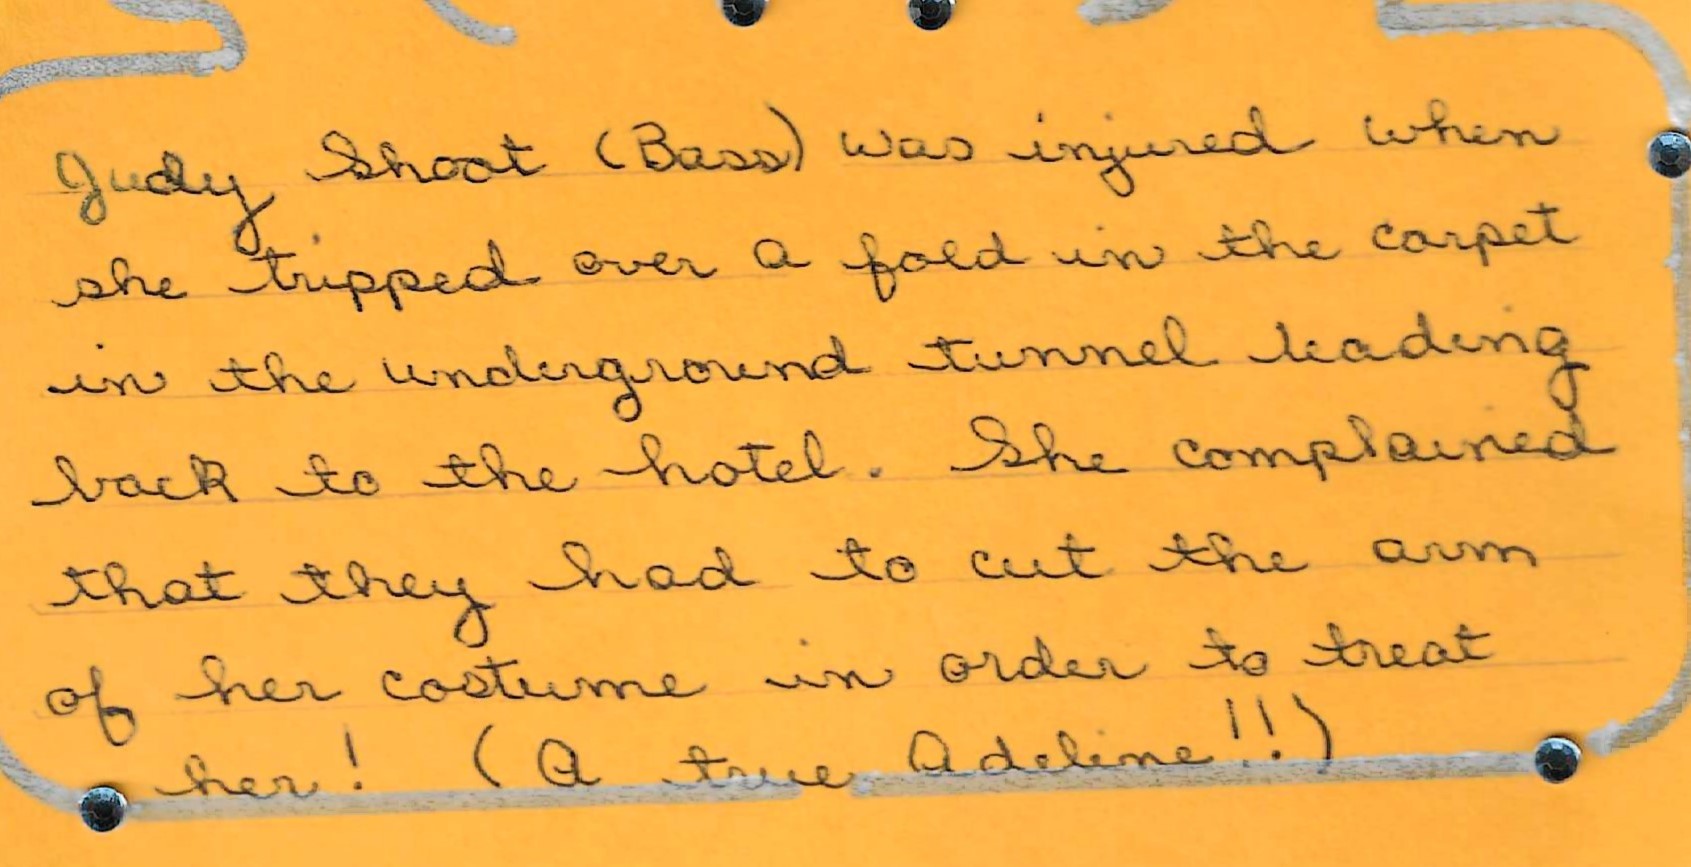 Judy Shoot (Bass) was injured when
she tripped over a fold in the carpet
in the underground tunnel leading
back to the hotel. She complained
that they had to cut the arm
of her costume in order to treat
her! (A true Adeline!!!)